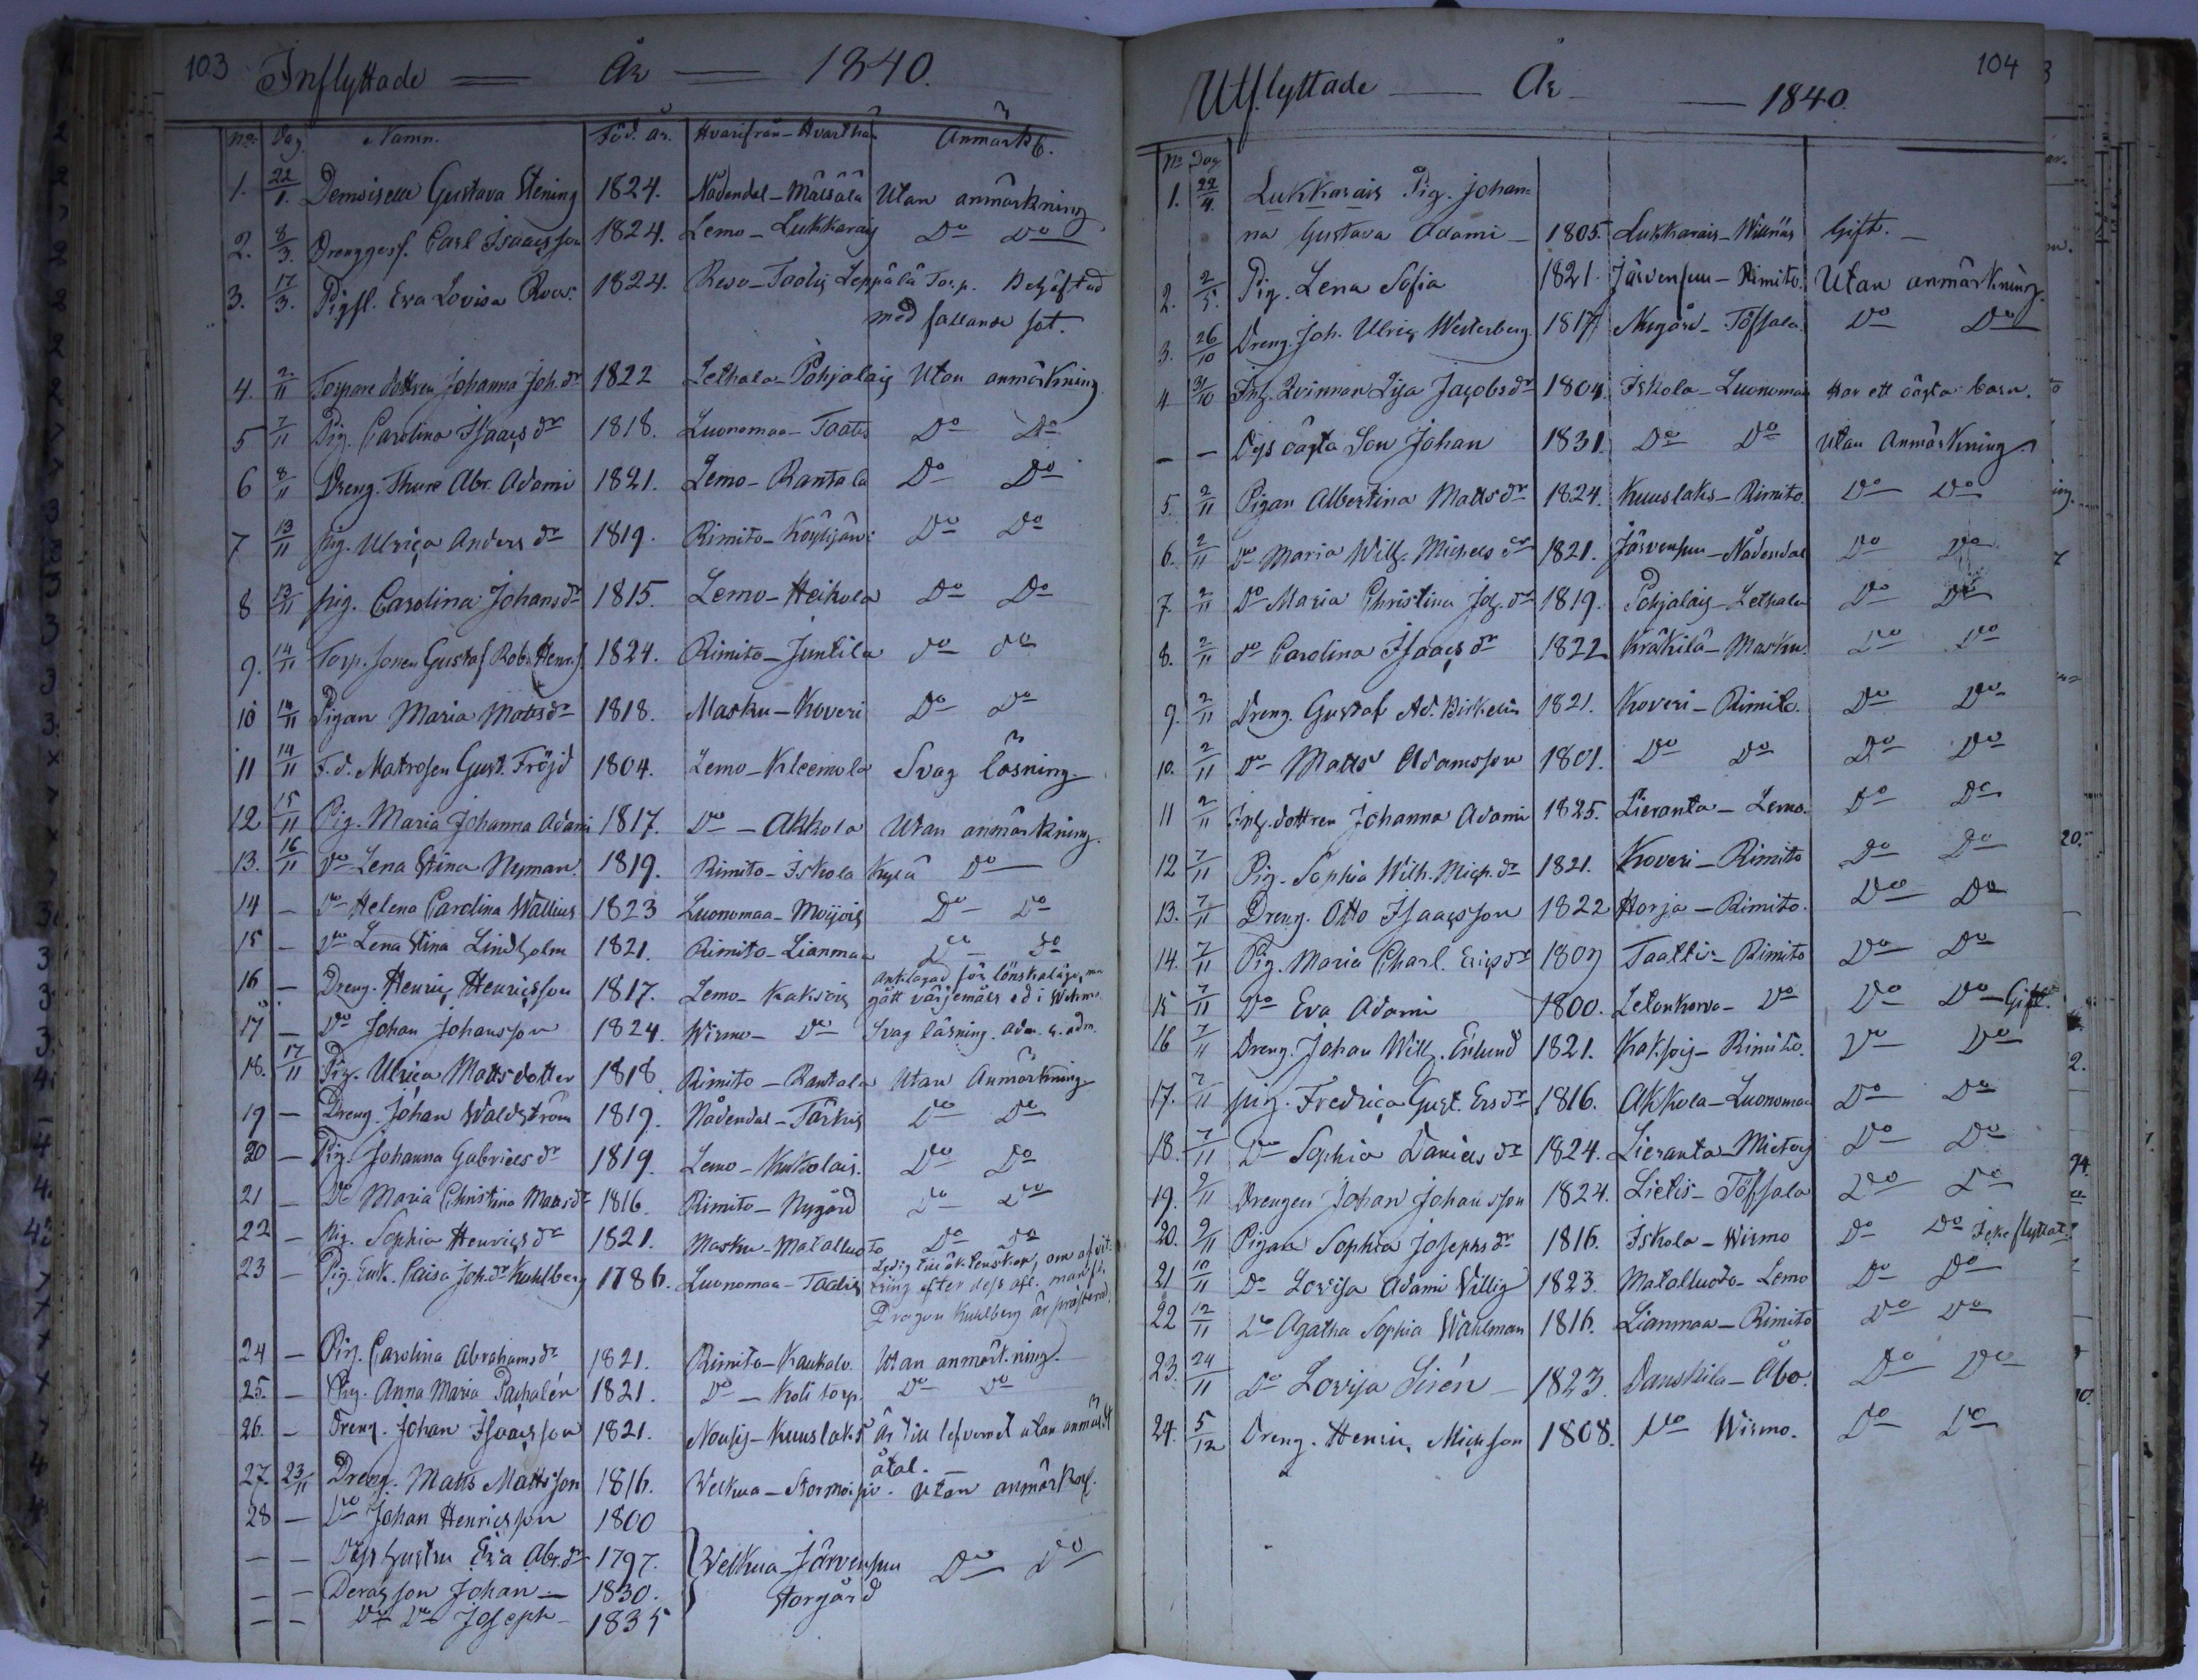 103 Inflyttade — År — 1840.
No. Dag. Namn. Föd. år. Hvarifrån - Hvarthän Anmärkg.
1. 22/1. Demoiselle Gustava Stening 1824. Nådendal - Mälsälä Utan anmärkning
2. 8/3. Drenggess. Carl Isaacsson 1824. Lemo - Lukkarais Do Do
3. 17/3. Pigfl. Eva Lovisa Roos. 1824. Reso - Taatis Leppälä Torp. Behäftad
med fallande sot.
4. 2/11 Torpare dottren Johanna Joh. dr 1822 Lethala - Pohjalais Utan anmärkning
5 7/11 Pig. Carolina Isaacs dr 1818. Luonomaa - Taatis Do Do
6 8/11 Dreng. Thure Abr. Adami 1821. Lemo - Rantala Do Do
7 13/11 pig. Ulrica Anders dr 1819. Rimito - Köylijärvi Do Do
8 13/11 pig. Carolina Johans dr 1815. Lemo - Heikola Do Do
9. 14/11 Torp. sonen Gustaf Rob. Henrs 1824. Rimito - Juntila do do
10 14/11 Pigan Maria Matts dr 1818. Masku - Koveri Do Do
11 14/11 F. d. Matrosen Gust. Fröjd 1804. Lemo - Kleemola Svag läsning.
12 15/11 Pig. Maria Johanna Adami 1817. Do - Akkola Utan anmärkning.
13. 16/11 Do Lena Stina Nyman. 1819. Rimito - Iskola Kylä Do
14 — Do Helena Carolina Wallius 1823 Luonomaa - Moijois Do Do
15 — Do Lena Stina Lindholm 1821. Rimito - Lianmaa Do Do
16 — Dreng. Henric Henricsson 1817. Lemo - Kaksois Anklagad för lönskaläge, men
gått värjemåls ed i Wehmo
17 — Do Johan Johansson 1824. Wirmo - Do Svag läsning. adm. c. adm.
18. 17/11 Pig. Ulrica Mattsdotter 1818 Rimito - Rantala Utan Anmärkning
19 — Dreng. Johan Waldström 1819. Nådendal - Tärkis Do Do
20 — Pig. Johanna Gabriels dr 1819. Lemo - Kukolais. Do Do
21 — Do Maria Christina Matts dr 1816. Rimito - Nygård Do Do
22 — Pig. Sophia Henrics dr 1821. Masku - Matalluoto Do Do
23 — Pig. Enk. Caisa Joh. dr Kuhlberg 1786. Luonomaa - Taatis Ledig till äktenskap, om afvit-
tring efter dess afl. man f. d.
Dragon Kuhlberg är presterad.
24 — Pig. Carolina Abrahams dr 1821. Rimito - Kaukalo Utan anmärkning.
25. — Pig. Anna Maria Paqhalén 1821. Do - Koli torp. Do Do
26. — Dreng. Johan Isaacsson 1821. Nousis - Kuuslaks Är till lefvernet utan anmärkt
åtal.
27. 23/11 Dreng. Matts Mattsson 1816. Welkua - Stormoisio. Utan anmärkng.
28 — Do Johan Henricsson 1800
— — Dess hustru Eva Abr. dr 1797. Welkua Järvensuu Do Do
— — Deras son Johan — 1830. Storgård
— — Do Do Joseph — 1835
Utflyttade — År — 1840. 104
No Dag
1. 22/4. Lukkarais Pig. Johan-
na Gustava Adami — 1805. Lukkarais - Willnäs Gift. —
2. 2/5. Pig. Lena Sofia 1821 Järvensuu - Rimito. Utan anmärkning.
3. 26/10 Dreng. Joh. Ulric Westerberg. 1817 Nygård - Töfsala. Do Do
4 31/10 Inh. Qvinnan Lisa Jacobs dr 1804. Iskola - Luonomaa Har ett oägta barn.
— — Dess oägta Son Johan 1831. Do Do Utan Anmärkning.
5. 2/11 Pigan Albertina Matts dr 1824. Kuuslaks - Rimito. Do Do
6. 2/11 Do Maria Wilh. Michels dr 1821. Järvensuu - Nådendal Do Do
7. 2/11 Do Maria Christina Joh. dr 1819. Pohjalais - Lethala Do Do
8. 2/11 do Carolina Isaacs dr 1822 Kräkilä - Masku. Do Do
9. 2/11 Dreng. Gustaf Ad. Birkelin 1821. Koveri - Rimito. Do Do
10. 2/11 Do Matts Adamsson 1801. Do Do Do Do
11 2/11 Inh. dottren Johanna Adami 1825. Lieranta - Lemo. Do Do
12 7/11 Pig. Sophia Wilh. Mich. dr 1821. Koveri - Rimito Do Do
13. 7/11 Dreng. Otto Isaacsson 1822 Horja - Rimito. Do Do
14. 7/11 Pig. Maria Charl. Erics dr 1807 Taattis - Rimito Do Do
15 7/11 Do Eva Adami 1800. Letonkorva - Do Do Do Gift.
16 7/11 Dreng. Johan Wilh. Enlund 1821. Kaksois - Rimito. Do Do
17. 7/11 pig. Fredrica Gust. Ers dr 1816. Akkola - Luonomaa Do Do
18. 7/11 Do Sophia Daniels dr 1824. Lieranta - Mietois Do Do
19. 9/11 Drengen Johan Johansson 1824. Lietis - Töfsala Do Do
20. 9/11 Pigan Sophia Josephs dr 1816. Iskola - Wirmo Do Do Icke flyttat.
21 10/11 Do Lovisa Adami Willig 1823. Matalluoto - Lemo Do Do
22 12/11 Do Agatha Sophia Wahlman 1816. Lianmaa - Rimito Do Do
23. 24/11 Do Lovisa Sirén — 1823. Danskila - Åbo. Do Do
24. 5/12 Dreng. Henric Michsson 1808. Do Wirmo. Do Do